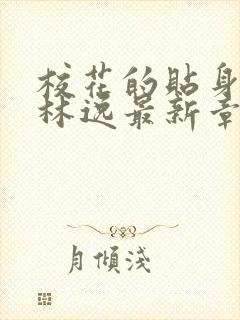 校花的贴身
林逸最新章
月倾浅